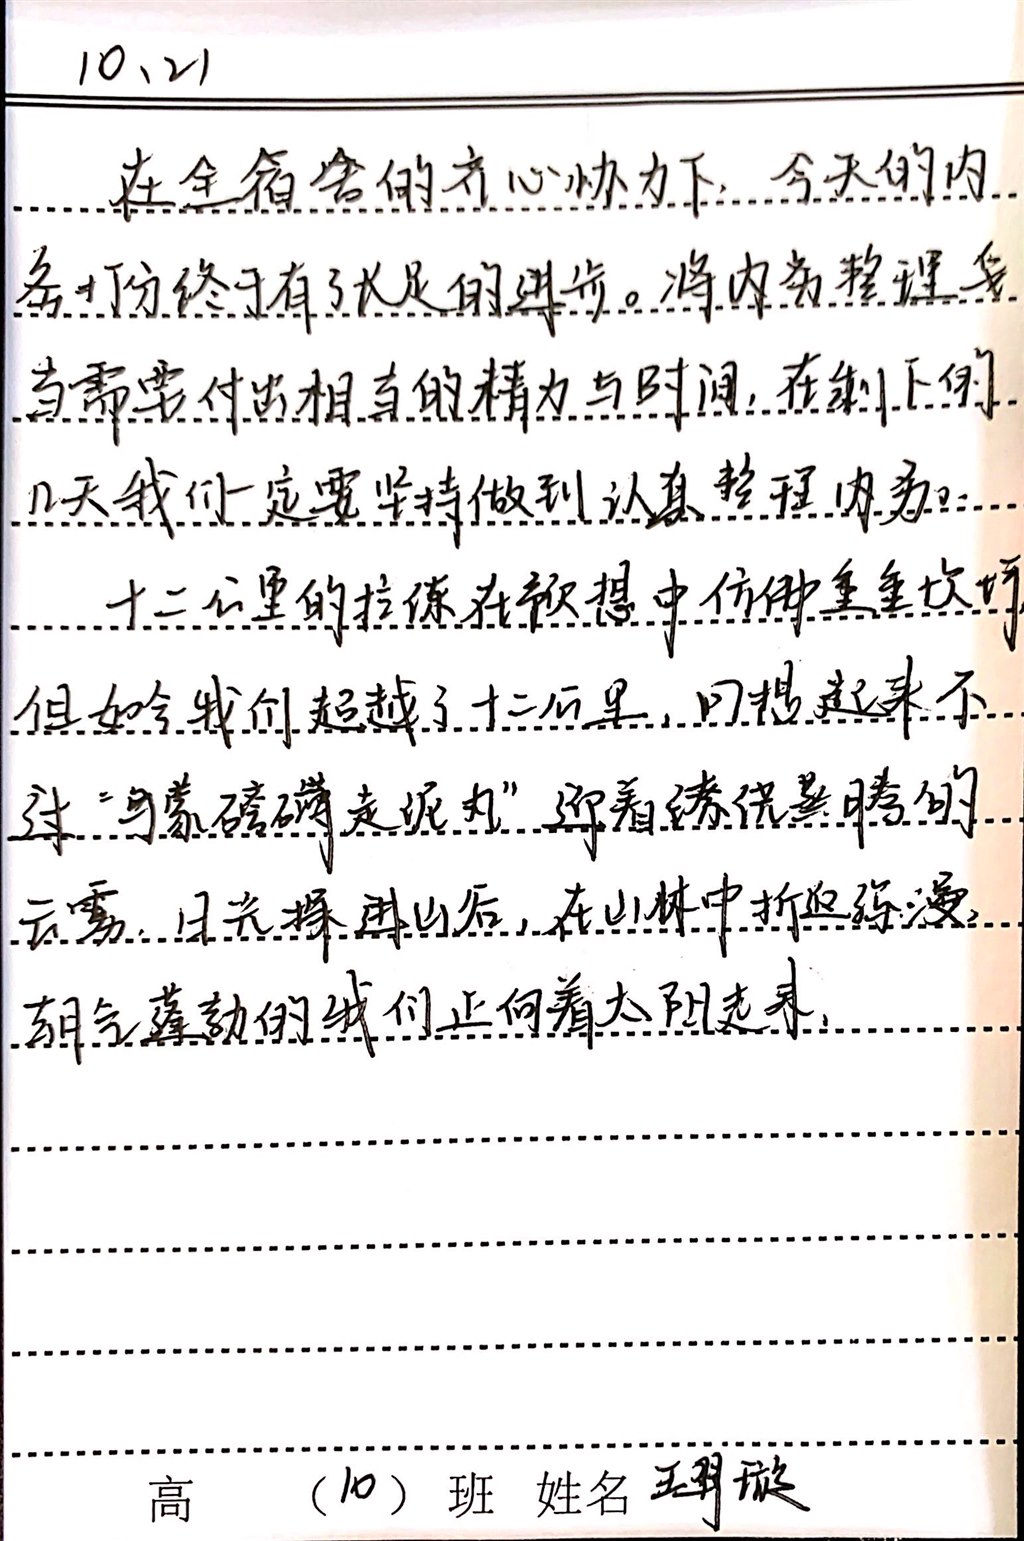 10、21
在全宿舍的齐心协力下，今天的内
务打分终于有了长足的进步。将内务整理妥
当需要付出相当的精力与时间，在剩下的
几天我们一定要坚持做到认真整理内务。
十二公里的拉练在预想中仿佛重重坎坷
但如今我们超越了十二公里，回想起来不
过“乌蒙磅礴走泥丸”迎着缭绕蒸腾的
云雾，日光探进山后，在山林中折返弥漫，
朝气蓬勃的我们正向着太阳走来，
高 （10）班 姓名 王羿璇